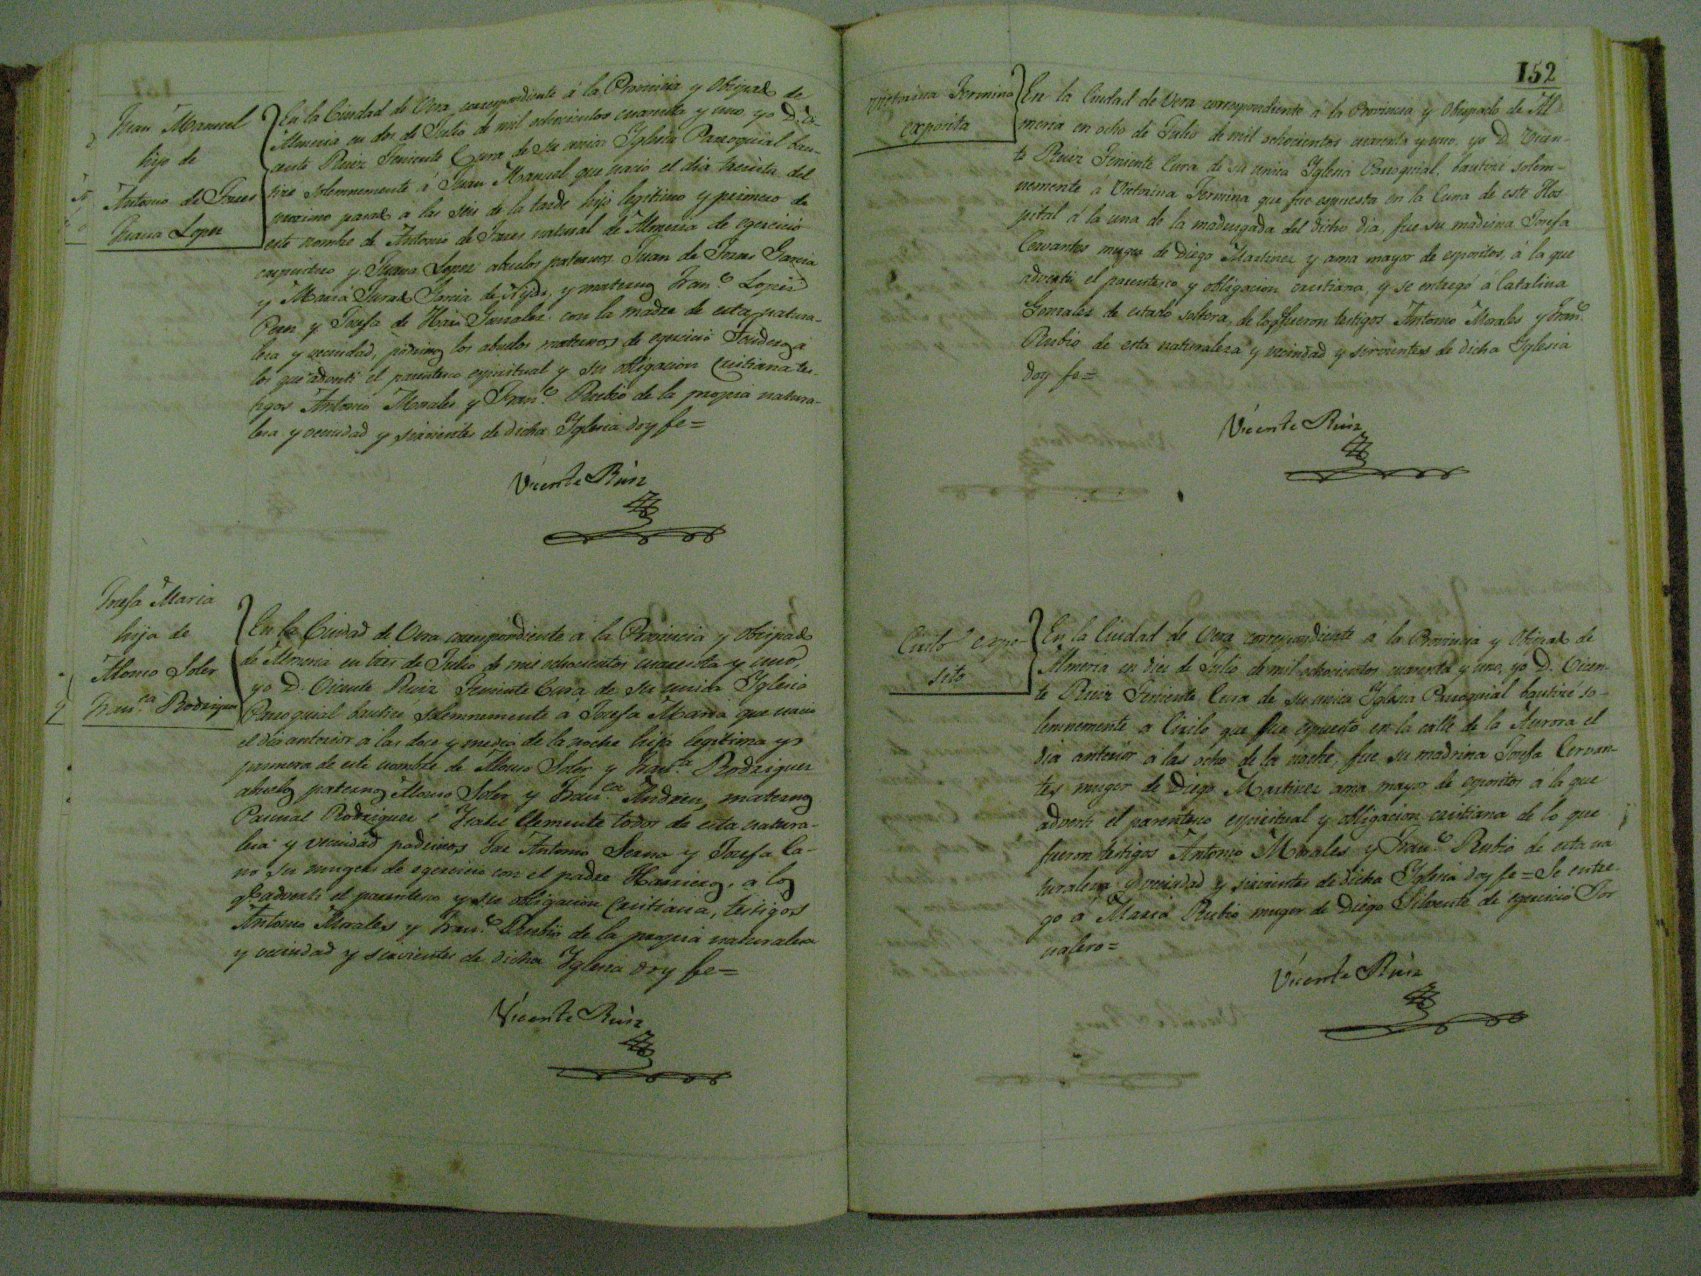 Juan Manuel
hijo de
Antonio de Torres
Juana Lopez
En la Ciudad de Vera correspondiente á la Provincia y Obispad.º de
Almeria en dos de Julio de mil ochocientos cuarenta y uno, yo D. Vi-
cente Ruiz Teniente Cura de su unica Iglesia Parroquial bau-
tice solemnemente á Juan Manuel que nacio el dia treinta del
proximo pasad.º á las seis de la tarde hijo legitimo y primero de
este nombre de Antonio de Torres natural de Almeria de egercicio
carpintero y Juana Lopez abuelos paternos Juan de Torres Garcia
y Maria y maternos Fran.co Lopez
Perez y Josefa de Haro con la madre de esta natura-
leza y vecindad, padrinos los abuelos maternos de egercicio
los que adverti el parentesco espiritual y su obligacion cristiana tes-
tigos Antonio Morales y Fran.co Rubio de la propia natura-
leza y vecindad y sirvientes de dicha Iglesia doy fe=
Vicente Ruiz
Josefa Maria
hija de
Alonso Soler
Fran.ca Rodriguez
En la Ciudad de Vera correspondiente á la Provincia y Obispad.º
de Almeria en tres de Julio de mil ochocientos cuarenta y uno,
yo D. Vicente Ruiz Teniente Cura de su unica Iglesia
Parroquial bauticé solemnemente á Josefa Maria que nacio
el dia anterior a las doce y media de la noche hija legitima y
primera de este nombre de Alonso Soler y Fran.ca Rodriguez
abuelos paternos Alonso Soler y Fran.ca Andreu, maternos
Pascual Rodriguez é Ysabel Clemente todos de esta natura-
leza y vecindad padrinos Jose Antonio y Josefa Ca-
no su muger de egercicio con el padre Harriero, a los
q.e adverti el parentesco y su obligacion cristiana, testigos
Antonio Morales y Fran.co Rubio de la propia naturaleza
y vecindad y sirvientes de dicha Yglesia doy fe=
Vicente Ruiz
152
Victorina Fermina
esposita
En la Ciudad de Vera correspondiente á la Provincia y Obispado de Al-
meria en ocho de Julio de mil ochocientos cuarenta y uno, yo D. Vicen-
te Ruiz Teniente Cura de su unica Iglesia Parroquial, bauticé solem-
nemente á Victorina Fermina que fue espuesta en la Cuna de este Hos-
pital á la una de la madrugada del dicho dia, fue su madrina Josefa
Cervantes muger de Diego Martinez y ama mayor de espositos, á la que
adverti el parentesco y obligacion cristiana, y se entregó á Catalina
Gonzalez de estado soltera, de lo q.e fueron testigos Antonio Morales y Fran.co
Rubio de esta naturaleza y vecindad y sirvientes de dicha Yglesia
doy fe=
Vicente Ruiz
Cirilo espo
sito
En la Ciudad de Vera correspondiente á la Provincia y Obispad.º de
Almeria en diez de Julio de mil ochocientos cuarenta y uno, yo D. Vicen-
te Ruiz Teniente Cura de su unica Yglesia Parroquial bauticé so-
lemnemente a Cirilo que fue espuesto en la calle de la Aurora el
dia anterior a las ocho de la noche, fue su madrina Josefa Cervan-
tes muger de Diego Martinez ama mayor de espositos a la que
adverti el parentesco espiritual y obligacion cristiana de lo que
fueron testigos Antonio Morales y Fran.co Rubio de esta na
turaleza y vecindad y sirvientes de dicha Yglesia doy fe= Se entre
gó á Maria Rubio muger de Diego Silvente de egercicio Jor
nalero=
Vicente Ruiz